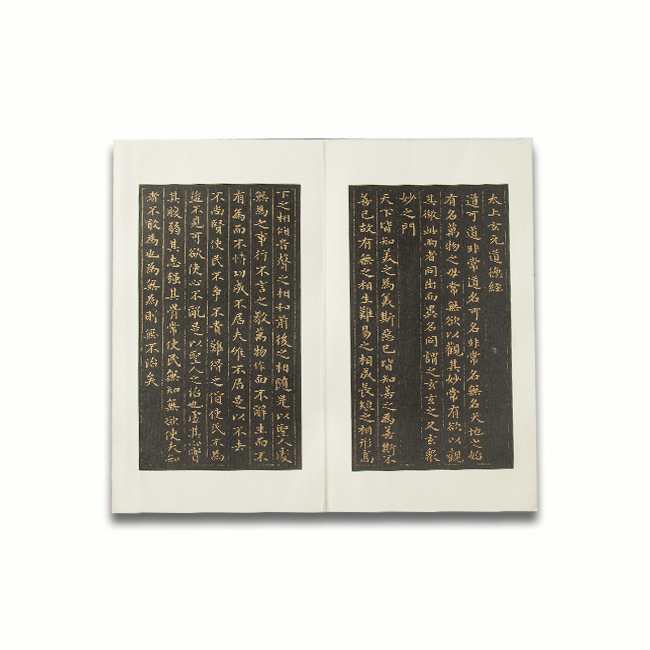 太上玄元道德經
道可道非常道名可名非常名無名天地之始
有名萬物之母常無欲以觀其妙常有欲以觀
其徼此兩者同出而異名同謂之玄玄之又玄衆
妙之門
天下皆知美之為美斯惡已皆知善之為善斯不
善已故有無之相生難易之相成長短之相形高
下之相傾音聲之相和前後之相隨是以聖人處
無為之事行不言之教萬物作而不辭生而不
有為而不恃功成不居夫惟不居是以不去
不尚賢使民不爭不貴難得之貨使民不為
盜不見可欲使心不亂是以聖人之治也虛其心實
其腹弱其志強其骨常使民無知無欲使夫知
者不敢為也為無為則無不治矣